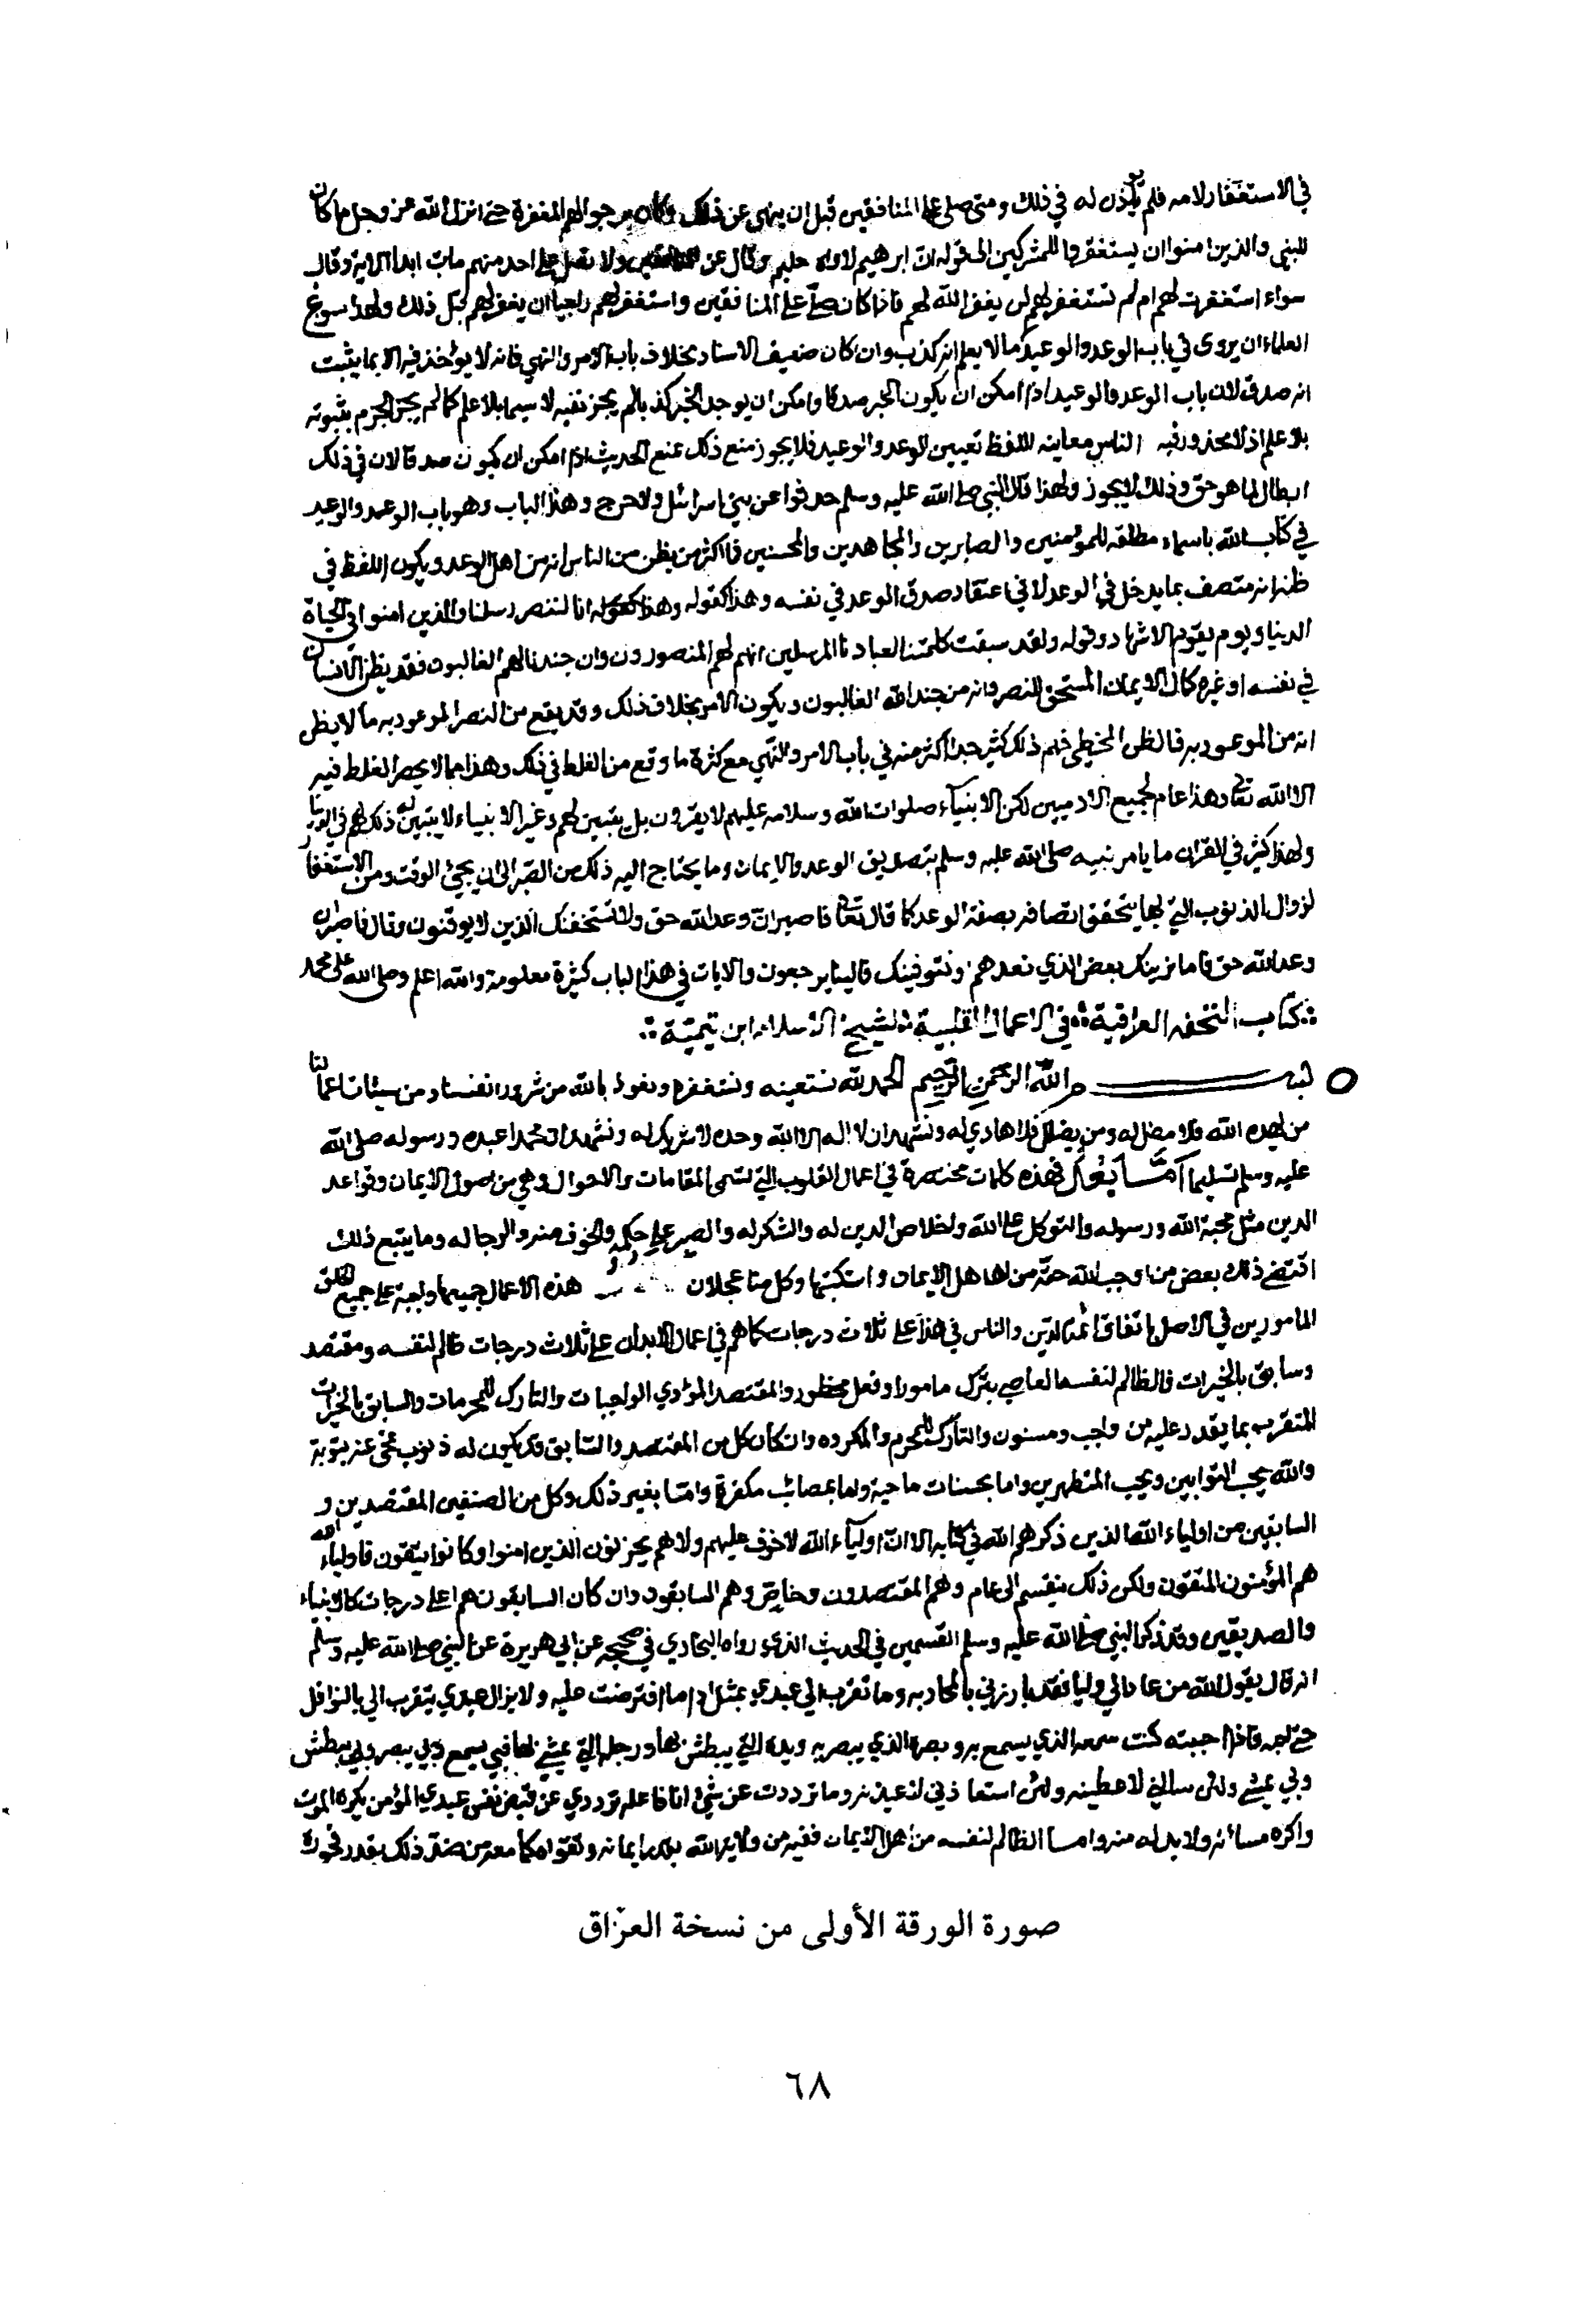 في الاستغفار لامه فلم يؤذن له في ذلك ومتى صلى على المنافقين قبل ان ينهى عن ذلك وكان يرجو لهم المغفرة حتى انزل الله عز وجل ما كان
للنبي والذين امنوا ان يستغفروا للمشركين الى قوله ان ابرهيم لاواه حليم وقال عن المنافقين ولا تصل على احد منهم مات ابدا الاية وقال
سواء استغفرت لهم ام لم تستغفر لهم لن يغفر الله لهم فاذا كان صلى على المنافقين واستغفر لهم راجيا ان يغفر لهم قبل ذلك ولهذا سوغ
العلماء ان يروى في باب الوعد والوعيد ما لا يعلم انه كذب وان كان ضعيف الاسناد بخلاف باب الامر والنهي فانه لا يؤخذ فيه الا بما يثبت
انه صدق لان باب الوعد والوعيد اذا امكن ان يكون الخبر صدقا وامكن ان يوجد الخبر كذبا لم يجز نفيه لا سيما بلا علم كما لم يجز الجزم بثبوته
بلا علم اذ لا محذور فيه الناس معاينه للفظ تعيين الوعد والوعيد فلا يجوز منع ذلك بمنع الحديث اذا امكن ان يكون صدقا لان في ذلك
ابطال لما هو حق وذلك لا يجوز ولهذا قال النبي صلى الله عليه وسلم حدثوا عن بني اسرائل ولا حرج وهذا الباب وهو باب الوعد والوعيد
في كتاب الله باسماء مطلقه للمؤمنين والصابرين والمجاهدين والمحسنين فما اكثر من يظن من الناس انه من اهل الوعد ويكون اللفظ في
ظنه انه متصف بما يدخل في الوعد لا في اعتقاد صدق الوعد في نفسه وهذا كقوله وهذا كقوله انا لننصر رسلنا والذين امنوا في الحياة
الدنيا ويوم يقوم الاشهاد وقوله ولقد سبقت كلمتنا لعبادنا المرسلين انهم لهم المنصورون وان جندنا لهم الغالبون فقد يظن الانسان
في نفسه او غيره كمال الايمان المستحق للنصر وانه من جند الله الغالبون ويكون الامر بخلاف ذلك وقد يقع من النصر الموعود به ما لا يظن
انه من الموعود به فالظن المخطي فهم ذلك كثير جدا اكثر منه في باب الامر والنهي مع كثرة ما وقع من الغلط في ذلك وهذا مما لا يحصر الغلط فيه
الا الله تعالى وهذا عام لجميع الادميين لكن الانبيآء صلوات الله وسلامه عليهم لا يقرون بل يتبين لهم وغير الانبياء لا يتبين له ذلك لهم في الدنيا
ولهذا كثر في القران ما يامر نبيه صلى الله عليه وسلم بتصديق الوعد والايمان وما يحتاج اليه ذلك من الصبر الى ان يجئ الوقت ومن الاستغفار
لزوال الذنوب التي بها يتحقق اتصافه بصفة الوعد كما قال تعالى فاصبر ان وعد الله حق ولا يستخفنك الذين لا يوقنون وقال فاصبر ان
وعد الله حق فاما نرينك بعض الذي نعدهم او نتوفينك فالينا يرجعون والايات في هذا الباب كثيرة معلومة والله اعلم وصلى الله على محمد
كتاب التحفه العراقية في الاعمال القلبية لشيخ الاسلام ابن تيمية
بسم الله الرحمن الرحيم الحمد لله نستعينه ونستغفره ونعوذ بالله من شرور انفسنا ومن سيئات اعمالنا
من يهده الله فلا مضل له ومن يضلل فلا هادي له ونشهد ان لا اله الا الله وحده لا شريك له ونشهد ان محمدا عبده ورسوله صلى الله
عليه وسلم تسليما اما بعد فهذه كلمات مختصرة في اعمال القلوب التي تسمى المقامات والاحوال وهي من اصول الايمان وقواعد
الدين مثل محبة الله ورسوله والتوكل على الله واخلاص الدين له والشكر له والصبر على حكمه والخوف منه والرجا له وما يتبع ذلك
اقتضى ذلك بعض من اوجب الله حقه من اهل الايمان واستكتبها وكل منا عجلان هذه الاعمال جميعها واجبة على جميع الخلق
المامورين في الاصل باتفاق أئمة الدين والناس في هذا على ثلاث درجات كما هم في اعمال الابدان على ثلاث درجات ظالم لنفسه ومقتصد
وسابق بالخيرات فالظالم لنفسه العاصي بترك مامور او فعل محظور والمقتصد المؤدي الواجبات والتارك للمحرمات والسابق بالخيرات
المتقرب بما يقدر عليه من واجب ومسنون والتارك للمحرم والمكروه وان كان كل من المقتصد والسابق قد يكون له ذنوب تمحى عنه بتوبة
والله يحب التوابين ويحب المتطهرين واما بحسنات ماحية واما بمصائب مكفرة واما بغير ذلك وكل من الصنفين المقتصدين و
السابقين من اولياء الله الذين ذكرهم الله في كتابه الا ان اوليآء الله لا خوف عليهم ولا هم يحزنون الذين امنوا وكانوا يتقون فاولياء الله
هم المؤمنون المتقون ولكن ذلك منقسم الى عام وهم المقتصدون وخاص وهم السابقون وان كان السابقون هم اعلى درجات كالانبياء
والصديقين وقد ذكر النبي صلى الله عليه وسلم القسمين في الحديث الذي رواه البخاري في صحيحه عن ابي هريرة عن النبي صلى الله عليه وسلم
انه قال يقول الله من عادا لي وليا فقد بارزني بالمحاربه وما تقرب الي عبدي بمثل اداء ما افترضت عليه ولا يزال عبدي يتقرب الي بالنوافل
حتى احبه فاذا احببته كنت سمعه الذي يسمع به وبصره الذي يبصر به ويده التي يبطش بها ورجله التي يمشي بها فبي يسمع وبي يبصر وبي يبطش
وبي يمشي ولئن سالني لاعطينه ولئن استعاذني لاعيذنه وما ترددت عن شئ انا فاعله ترددي عن قبض نفس عبدي المؤمن يكره الموت
واكره مسائته ولا بد له منه واما الظالم لنفسه من اهل الايمان ففيه من ولاية الله بقدر ايمانه وتقواه كما معه من ضد ذلك بقدر فجوره
صورة الورقة الأولى من نسخة العراق
٦٨